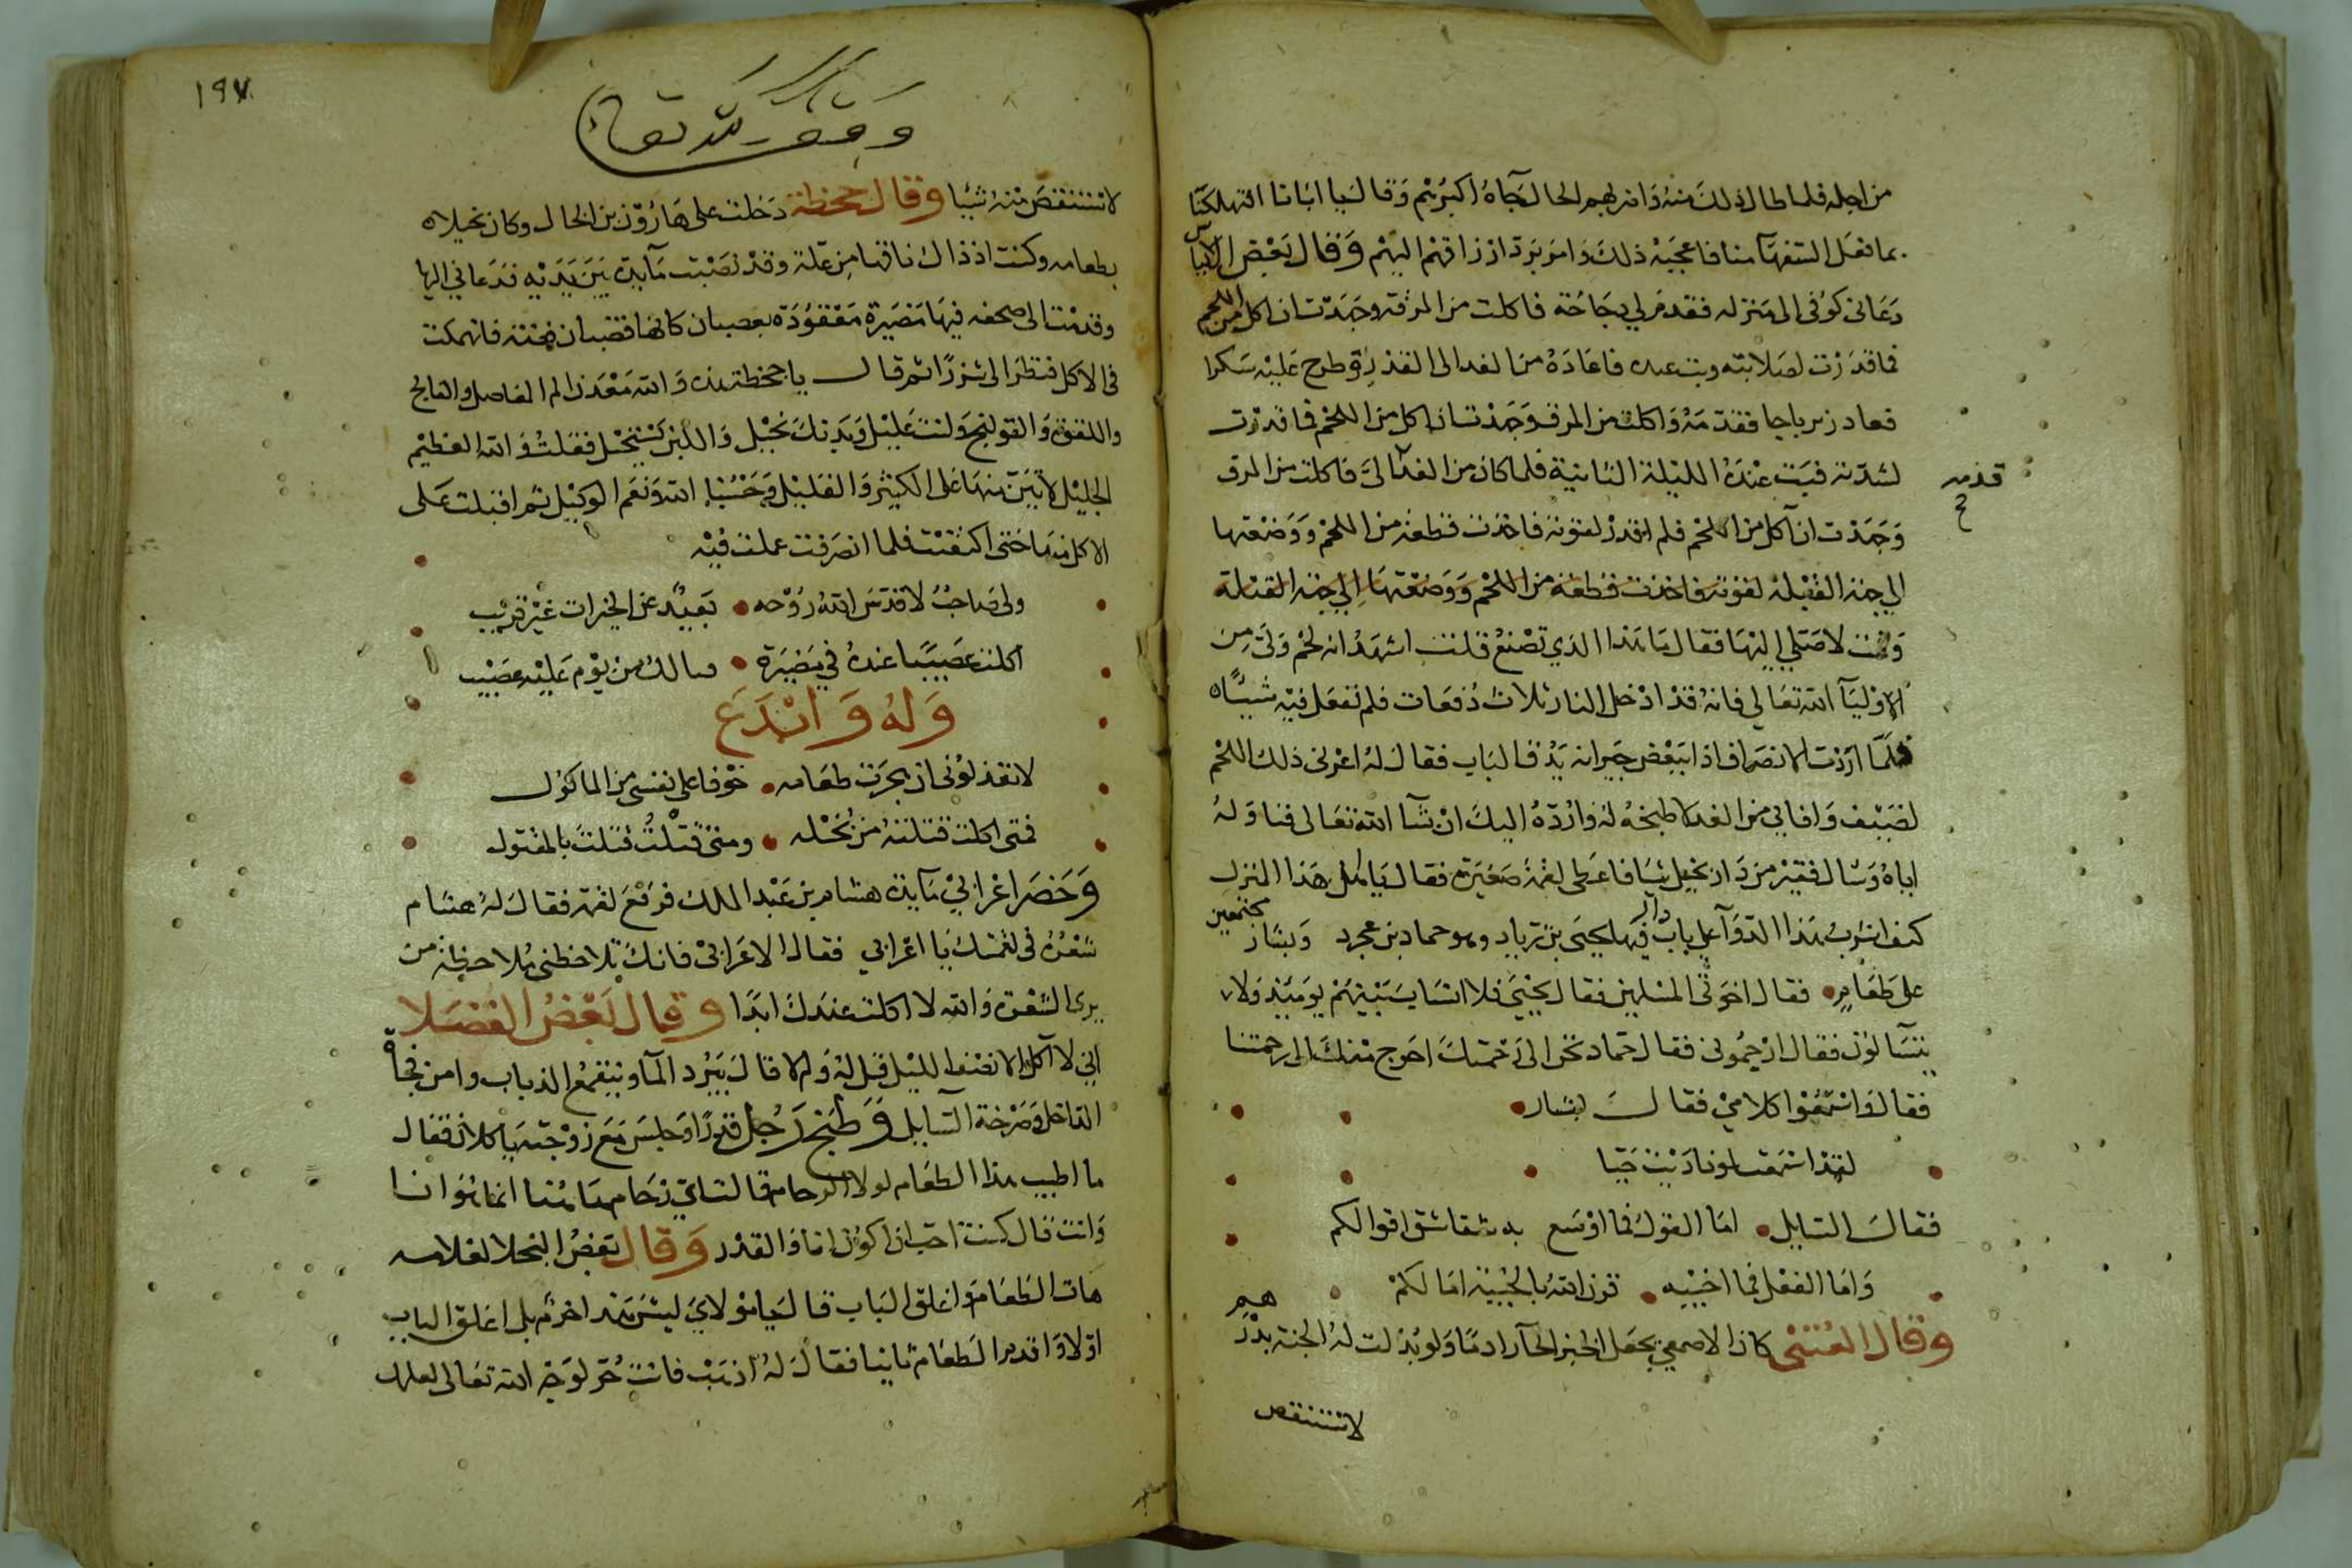 من اجله فلما طال ذلك منه وانتهم الحال جآءه اكبرهم وقال يا ابانا اتهلكنا
بما فعل السفهآ منا فاعجبه ذلك وامر برد ارزاقهم اليهم وقال بعض الناس
دعانى كوفى الى منزله فقدم لي دجاجة فاكلت من المرقه وجهدت ان اكل من اللحم
فما قدرت لصلابته وبت عنده فاعاده من الغد الى القدر وطرح عليه سكرا
فعاد زيرباجا فقدمه واكلت من المرق وجهدت ان اكل من اللحم فما قدرت
لشدته فبت عنده الليلة الثانية فلما كان من الغد الىَّ فاكلت من المرق
قدمه
وجهدت ان آكل من اللحم فلم اقدر لقوته فاخذت قطعة من اللحم ووضعتها
الي جهة القبلة لقوته فاخذت قطعة من اللحم ووضعتها الي جهة القبلة
وقمت لاصلي اليها فقال يا هذا الذي تصنع قلت اشهد انه لحم ولي من
الاوليآ الله تعالي فانه قد ادخل النار ثلاث دفعات فلم تفعل فيه شيئًا
فلمّا اردت الانصراف اذا ببعض جيرانه يدق الباب فقال له اعرنى ذلك اللحم
لضيف وافاني من الغد لاطبخه له واردّه اليك ان شآ الله تعالى فناوله
اياه وسال فقير من دار بخيل شيا فاعطى لقمة صغيرة فقال يا اهل هذا المنزل
كيف اشرب هذا الدوآ على باب دار فيها يحيى بن زياد وحماد بن عجرد وبشار مجتمعين
على طعام فقال اخوتى المسلمين فقال يحيى فلا انساب بينهم يوميذ ولا
يتسآلون فقال ارحمونى فقال حماد نحن الى رحمتك احوج منك الى رحمتنا
فقال واستمعوا كلامي فقال بشار
لقد اسمعت لو ناديت حيا
فقال السايل اما القول فما اوسع به شقاشق اقوالكم
واما الفعل فما اخيبه قرن الله بالخيبة امالكم
وقال العتبى كان الاصمعي يجعل الخبز الحار ادمًا ولو بذلت له الجنة بدرهم
لاستنقص
١٩٧
وقف لله تعالى
لاستنقص منه شيا وقال جحظة دخلت على هارون بن الخال وكان بخيلا
بطعامه وكنت اذ ذاك ناقها من علة وقد نصبت مآيدة بين يديه فدعاني اليها
وقدمت الى صحفه فيها مضيرة معقودة بعصبان كانها قضبان فضة فانهمكت
فى الاكل فنظر الى شزرًا ثم قال يا جحظة هذه والله معدن الم المفاصل والفالج
واللقوة والقولنج وانت عليل وبدنك نحيل واللبن يستحيل فقلت والله العظيم
الجليل لاتين منها على الكثير والقليل وحسبنا الله ونعم الوكيل ثم اقبلت على
الاكل منها حتى اكتفيت فلما انصرفت عملت فيه
ولى صاحبٌ لا قدّس الله روحه بعيد عن الخيرات غير قريب
اكلت عصيبًا عنده في مضيرة فيا لك من يوم عليه عصيب
وله وابدع
لا تعذلونى ان هجرت طعامه خوفا على نفسى من الماكول
فمتى اكلت قتلته من بخله ومتى قتلت قتلت بالمقتول
وحضر اعرابيّ مآيدة هشام بن عبد الملك فرفع لقمة فقال له هشام
شعرة فى لقمتك يا اعرابي فقال الاعرابى فانك تلاحظنى ملاحظة من
يرى الشعرة والله لا اكلت عندك ابدًا وقال بعض الفضلا
اني لا آكل الا نصف الليل قيل له ولم قال يبرد المآ وينقمع الذباب وامن فجأة
الداخل وصرخة السايل وطبخ رجل قدرًا وجلس مع زوجته ياكلان فقال
ما اطيب هذا الطعام لولا الزحام قالت اي زحام هاهنا انما هو انا
وانت قال كنت احب ان اكون انا والقدر وقال بعض البخلا لغلامه
هات الطعام واغلق الباب قال يا مولاي ليس هذا حزم بل اغلق الباب
اولا واقدم الطعام ثانيا فقال له اذهب فانت حرّ لوجه الله تعالى لعلمك